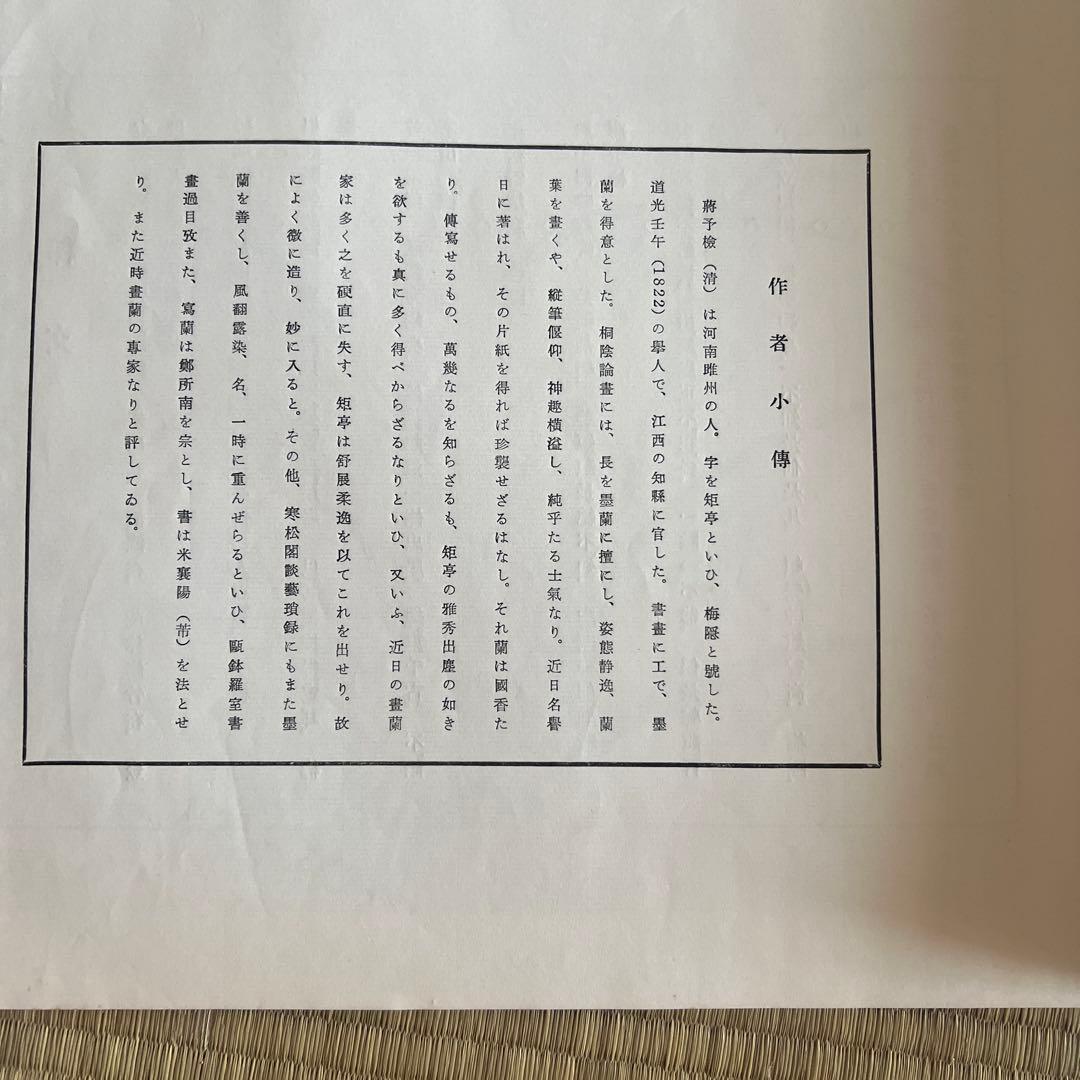 作者小傳
蔣予檢（清）は河南睢州の人。字を矩亭といひ、梅隱と號した。
道光壬午（1822）の擧人で、江西の知縣に官した。書畫に工で、墨
蘭を得意とした。桐陰論畫には、長を墨蘭に擅にし、姿態静逸、蘭
葉を畫くや、縱筆偃仰、神趣橫溢し、純乎たる士氣なり。近日名譽
日に著はれ、その片紙を得れば珍襲せざるはなし。それ蘭は國香た
り。傳寫せるもの、萬幾なるを知らざるも、矩亭の雅秀出塵の如き
を欲するも真に多く得べからざるなりといひ、又いふ、近日の畫蘭
家は多く之を硬直に失す、矩亭は舒展柔逸を以てこれを出せり。故
によく微に造り、妙に入ると。その他、寒松閣談藝瑣録にもまた墨
蘭を善くし、風翻露染、名、一時に重んぜらるといひ、甌鉢羅室書
畫過目攷また、寫蘭は鄭所南を宗とし、書は米襄陽（芾）を法とせ
り。また近時畫蘭の專家なりと評してゐる。